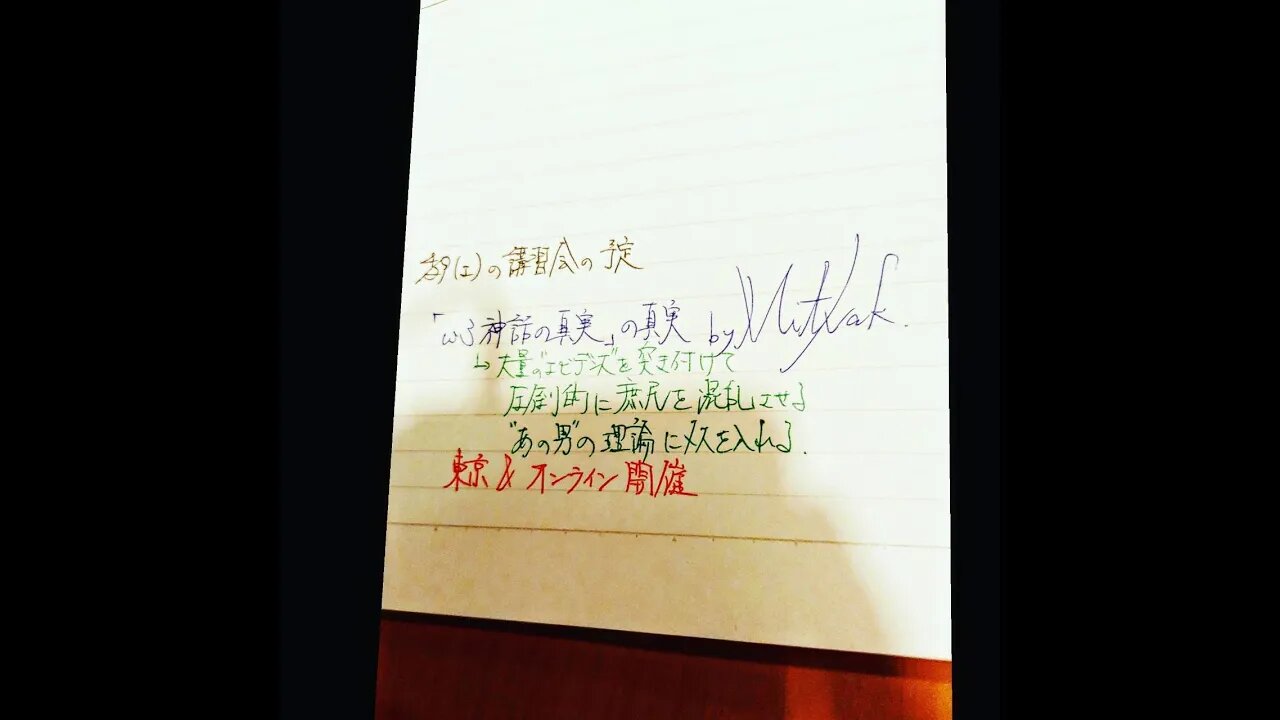 の講習会の予定
「ω3神話の真実」の真実 by
↳ 大量の"エビデンス"を突き付けて
圧倒的に庶民を混乱させる
"あの男"の理論にメスを入れる.
東京 & オンライン開催